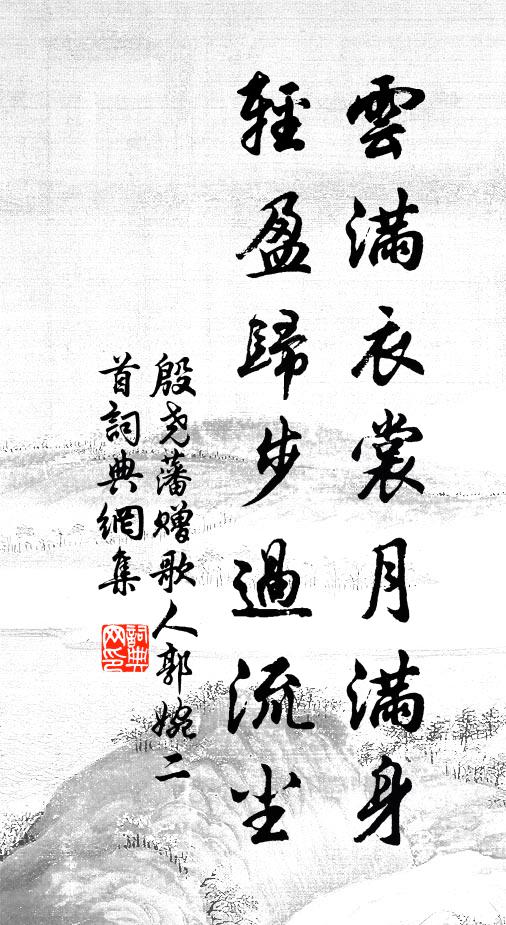 雲滿衣裳月滿身
輕盈歸步過流塵
殷尧藩贈歌人郭婉二
首詞典網集
詞典
网印